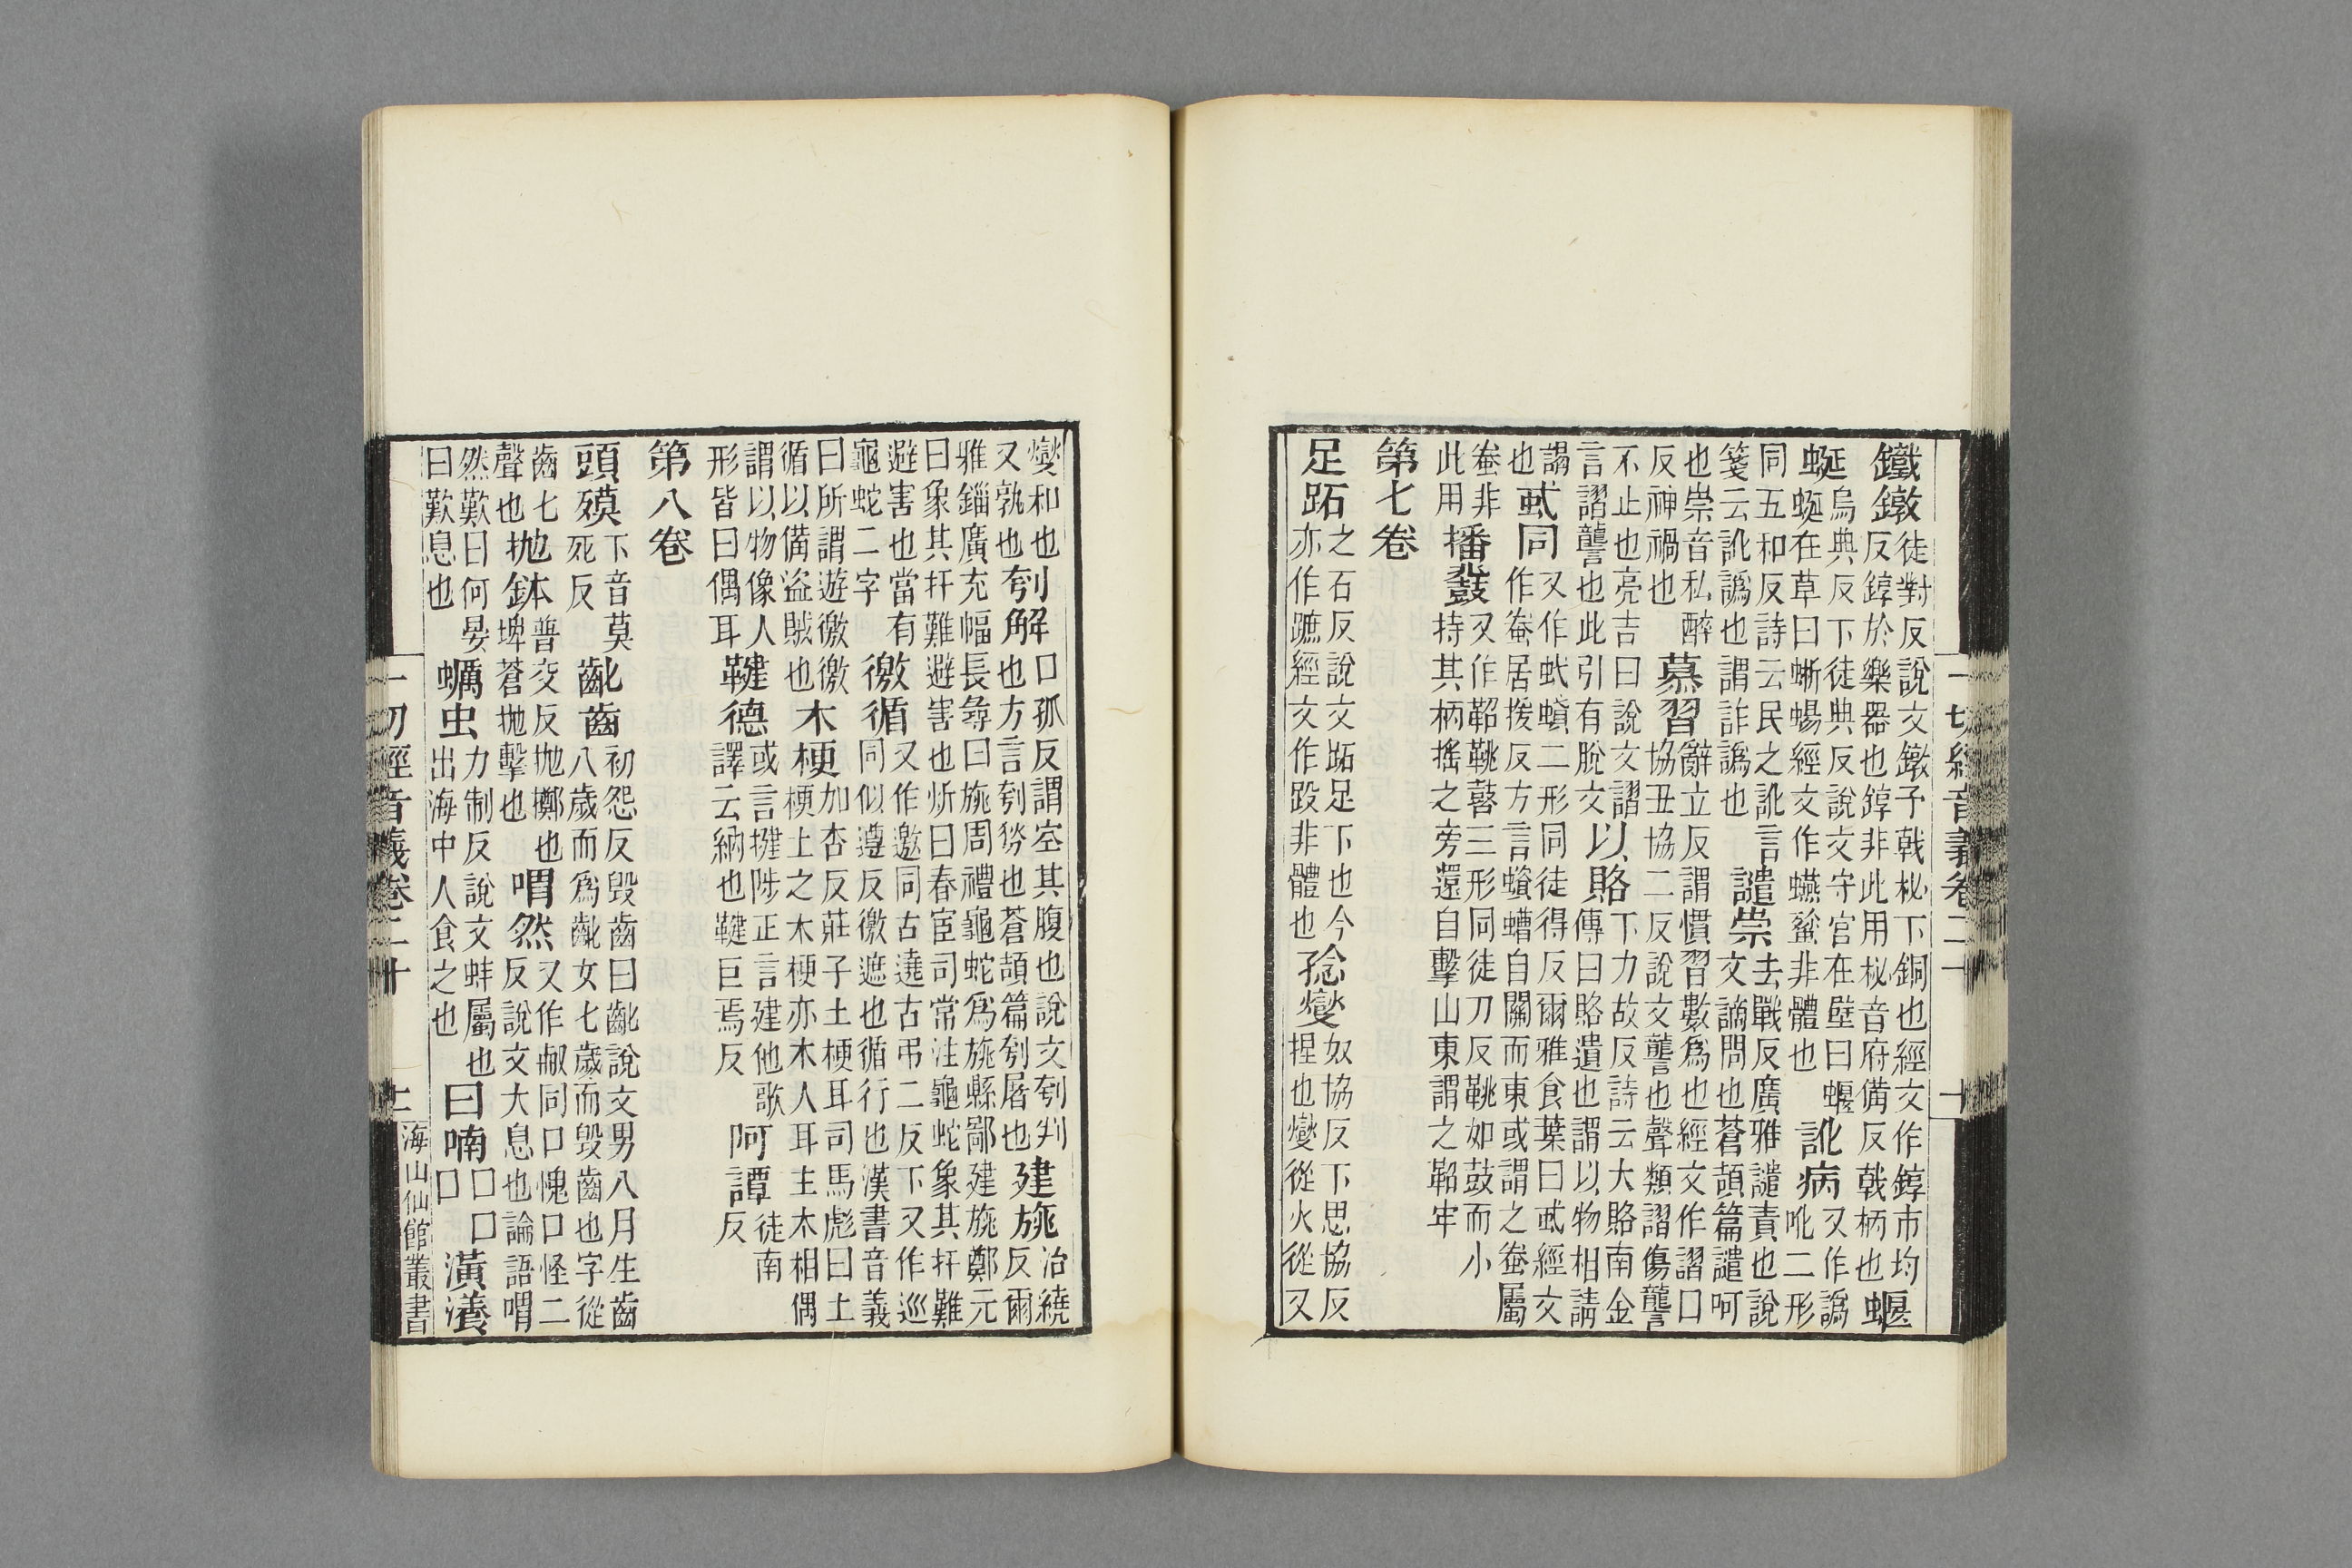 鐵鐓徒對反說文鐓子戟柲下銅也經文作錞市均反錞於樂器也錞非此用柲音府備反戟柄也蝘
蜒烏典反下徒典反說文守宮在壁曰蝘蜒在草曰蜥蜴經文作蠮螉非體也訛病又作譌吪二形
同五和反詩云民之訛言箋云訛譌也謂詐譌也譴祟去戰反廣雅譴責也說文讁問也蒼頡篇譴呵
也祟音私醉反神禍也慕習辭立反謂慣習數爲也經文作謵口協丑協二反說文讋也聲類謵傷讋
不止也亮吉曰說文謵言謵讋也此引有脫文以賂下力故反詩云大賂南金傳曰賂遺也謂以物相請
謁也同又作蚮蟘二形同徒得反爾雅食葉曰經文作居援反方言蠀螬自關而東或謂之屬
非此用播鼗又作鞀鞉鼛三形同徒刀反鞉如鼓而小持其柄搖之旁還自擊山東謂之鞀牢
第七卷
足跖之石反說文跖足下也今亦作蹠經文作跤非體也捻燮奴協反下思協反捏也燮從火從又
一切經音義卷二十
燮和也又孰也刳解口孤反謂空其腹也說文刳判也方言刳也蒼頡篇刳屠也建旐治繞反爾
雅錙廣充幅長尋曰旐周禮龜蛇爲旐縣鄙建旐鄭元曰象其扞難避害也炘曰春宦司常注龜蛇象其扞難
避害也當有龜蛇二字徼循又作邀同古遶古弔二反下又作巡同似遵反徼遮也循行也漢書音義
曰所謂遊徼徼循以備盜賊也木梗加杏反莊子土梗耳司馬彪曰土梗土之木梗亦木人耳土木相偶
謂以物像人形皆曰偶耳鞬德或言揵陟正言建他歌譯云納也鞬巨焉反阿譚徒南反
第八卷
頭下音莫死反齔齒初怨反毀齒曰齔說文男八月生齒八歲而爲齔女七歲而毀齒也字從
齒七聲也拋鉢普交反拋擲也埤蒼拋擊也喟然又作嘳同口愧口怪二反說文大息也論語喟
然歎曰何晏曰歎息也蠣虫力制反說文蚌屬也出海中人食之也曰喃口口口潢瀁
一切經音義卷二十
海山仙館叢書